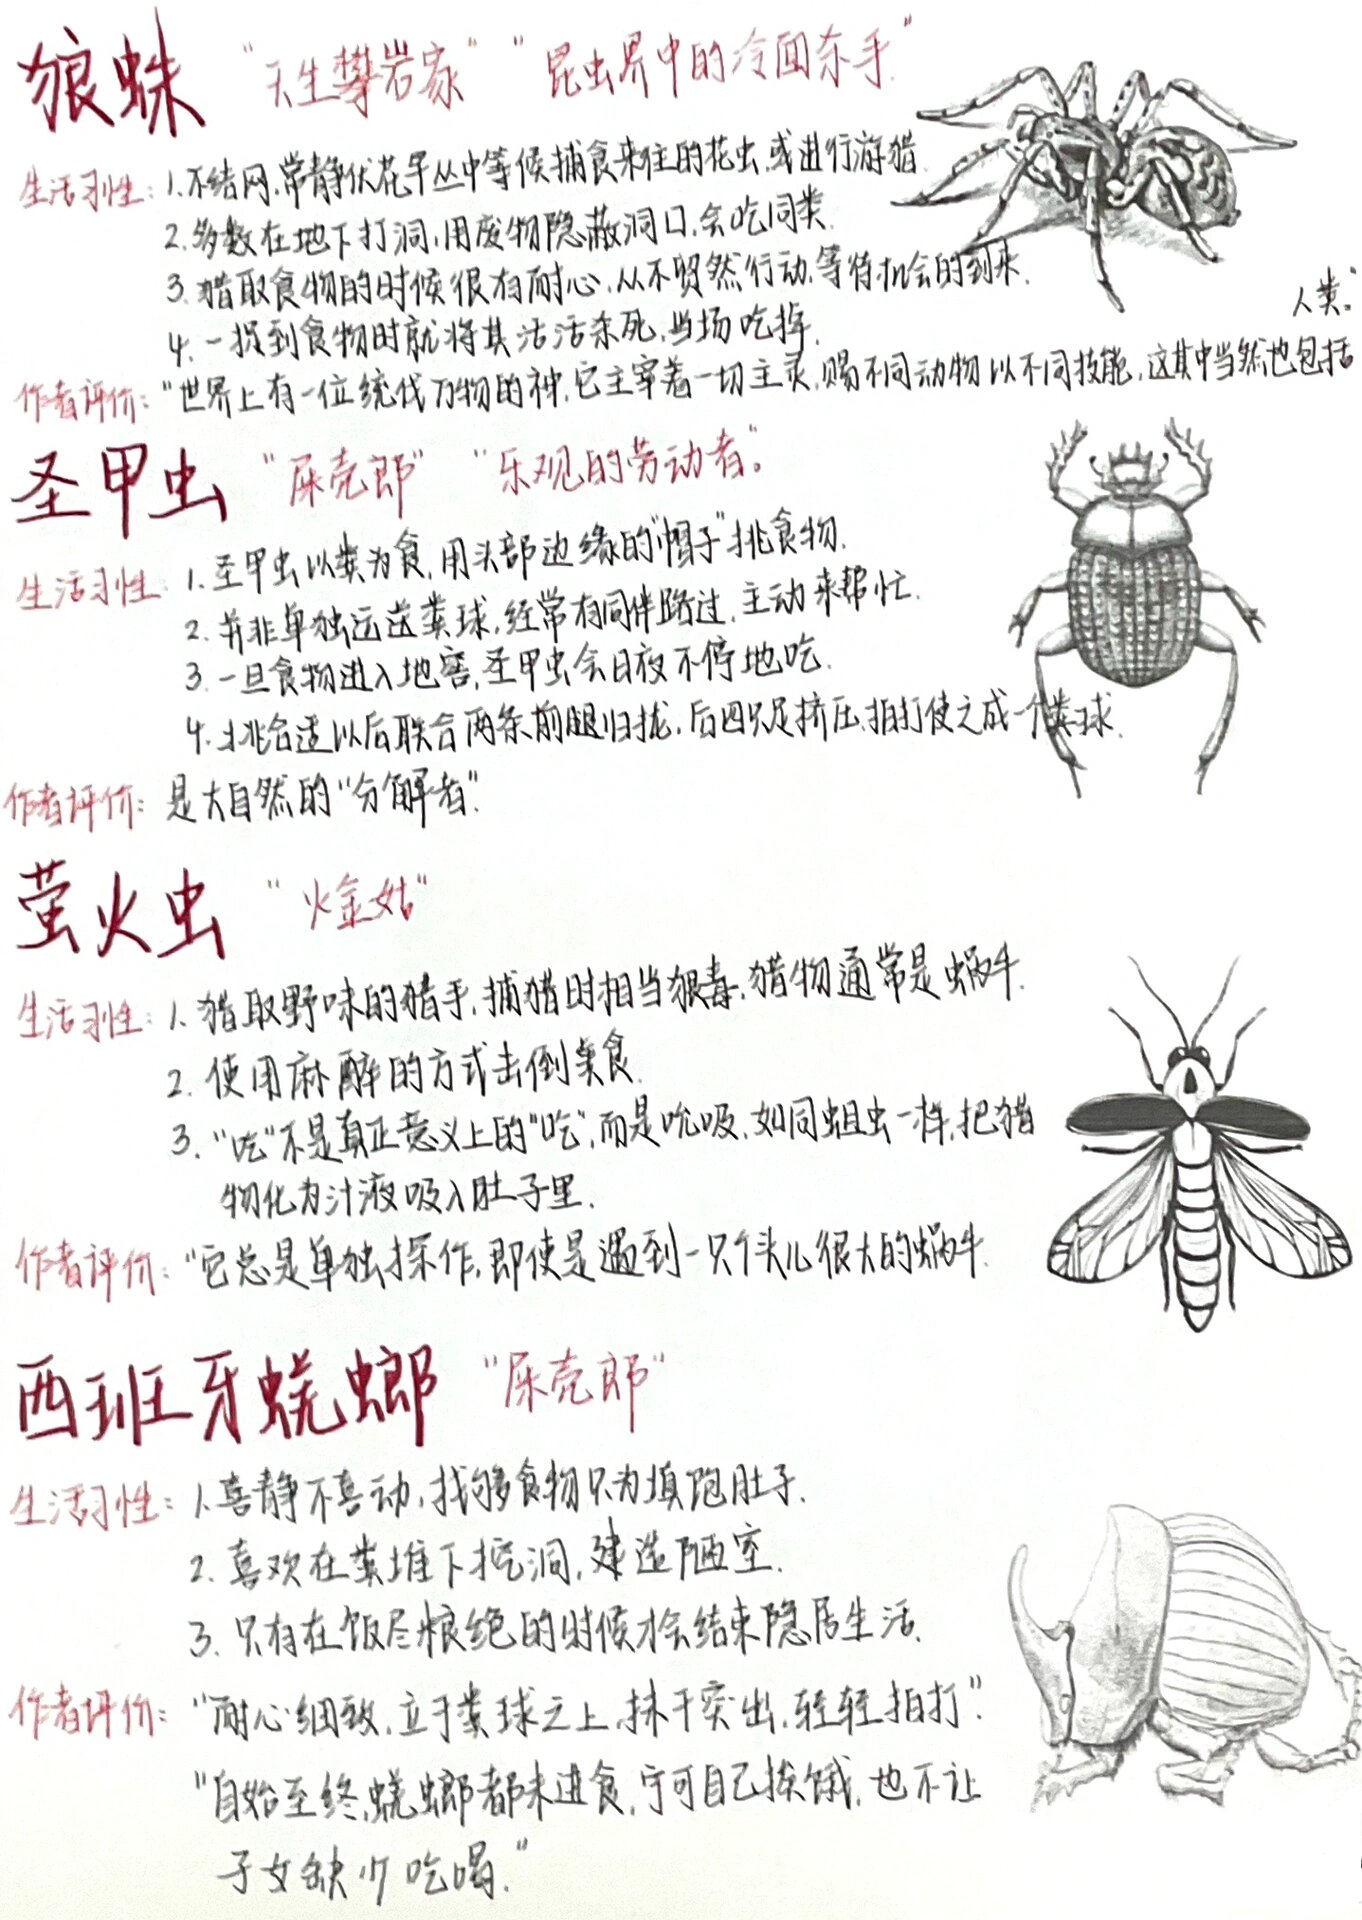 狼蛛 “天生攀岩家” “昆虫界中的冷面杀手”
生活习性：1.不结网，常静伏花草丛中等候捕食来往的花虫，或进行游猎.
2.多数在地下打洞，用废物隐蔽洞口，会吃同类.
3.猎取食物的时候很有耐心，从不贸然行动，等待机会的到来.
4.一捉到食物时就将其活活杀死，当场吃掉.
作者评价：“世界上有一位统伐万物的神，它主宰着一切主灵，赐不同动物以不同技能，这其中当然也包括
人类。”
圣甲虫 “屎壳郎” “乐观的劳动者。”
生活习性 1.圣甲虫以粪为食，用头部边缘的“帽子”挑食物.
2.并非单独运送粪球，经常有同伴路过，主动来帮忙.
3.一旦食物进入地窖，圣甲虫会日夜不停地吃.
4.挑合适以后联合两条前腿归拢，后四只足挤压，拍打使之成一个粪球.
作者评价：是大自然的“分解者”.
萤火虫 “火金姑”
生活习性：1.猎取野味的猎手，捕猎时相当狠毒，猎物通常是蜗牛.
2.使用麻醉的方式击倒美食.
3.“吃”不是真正意义上的“吃”，而是吮吸，如同蛆虫一样，把猎
物化为汁液吸入肚子里.
作者评价：“它总是单独操作，即使是遇到一只个头儿很大的蜗牛.
西班牙蜣螂 “屎壳郎”
生活习性：1.喜静不喜动，找够食物只为填饱肚子.
2.喜欢在粪堆下挖洞，建造陋室.
3.只有在饭尽粮绝的时候才会结束隐居生活.
作者评价：“耐心细致，立于粪球之上，抹干突出，轻轻拍打”.
“自始至终，蜣螂都未进食，宁可自己挨饿，也不让
子女缺少吃喝.”